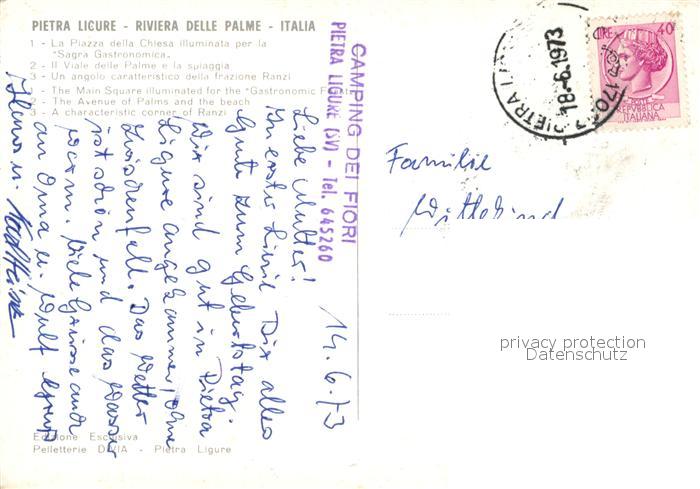 PIETRA LIGURE - RIVIERA DELLE PALME - ITALIA
1 - La Piazza della Chiesa illuminata per la
"Sagra Gastronomica.
2 - Il Viale delle Palme e la spiaggia
3 - Un angolo caratteristico della frazione Ranzi
1 - The Main Square illuminated for the "Gastronomic
2 - The Avenue of Palms and the beach
3 - A characteristic corner of Ranzi
CAMPING DEI FIORI
PIETRA LIGURE (SV) - Tel. 645260
14.6.73
Liebe Mutter!
In erster Linie Dir alles
Gute zum Geburtstag.
Wir sind gut in Pietra
Ligure angekommen, ohne
Zwischenfall. Das Wetter
ist schön und das Wasser
warm. Viele Grüsse auch
an Oma u.
PIETRA
18-6.1973
LIRE 40
REPUBBLICA
ITALIANA
Familie
Wittekind
privacy protection
Datenschutz
Edizione Esclusiva
Pelletterie DIVIA - Pietra Ligure